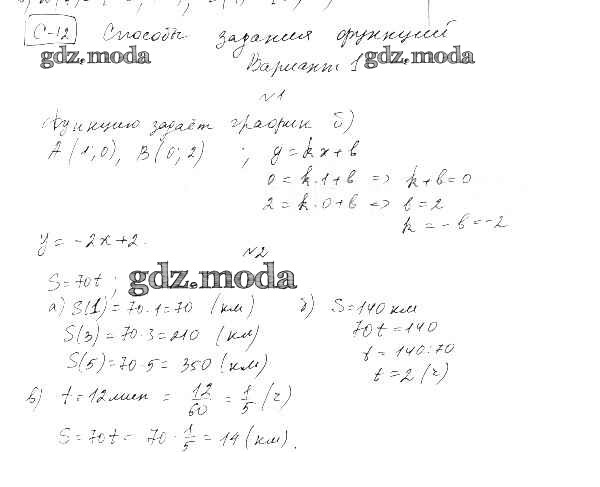 С-12 Способы задания функций
gdz.moda gdz.moda
Вариант 1
№1
Функцию задаёт график б)
A(1;0), B(0;2) ; y=kx+b
0=k·1+b => k+b=0
2=k·0+b => b=2
k=-b=-2
y=-2x+2.
№2
S=70t; gdz.moda
а) S(1)=70·1=70 (км) б) S=140 км
S(3)=70·3=210 (км) 70t=140
S(5)=70·5=350 (км) t=140:70
t=2 (ч)
в) t=12мин = 12/60 = 1/5 (ч)
S=70t= 70·1/5=14 (км).